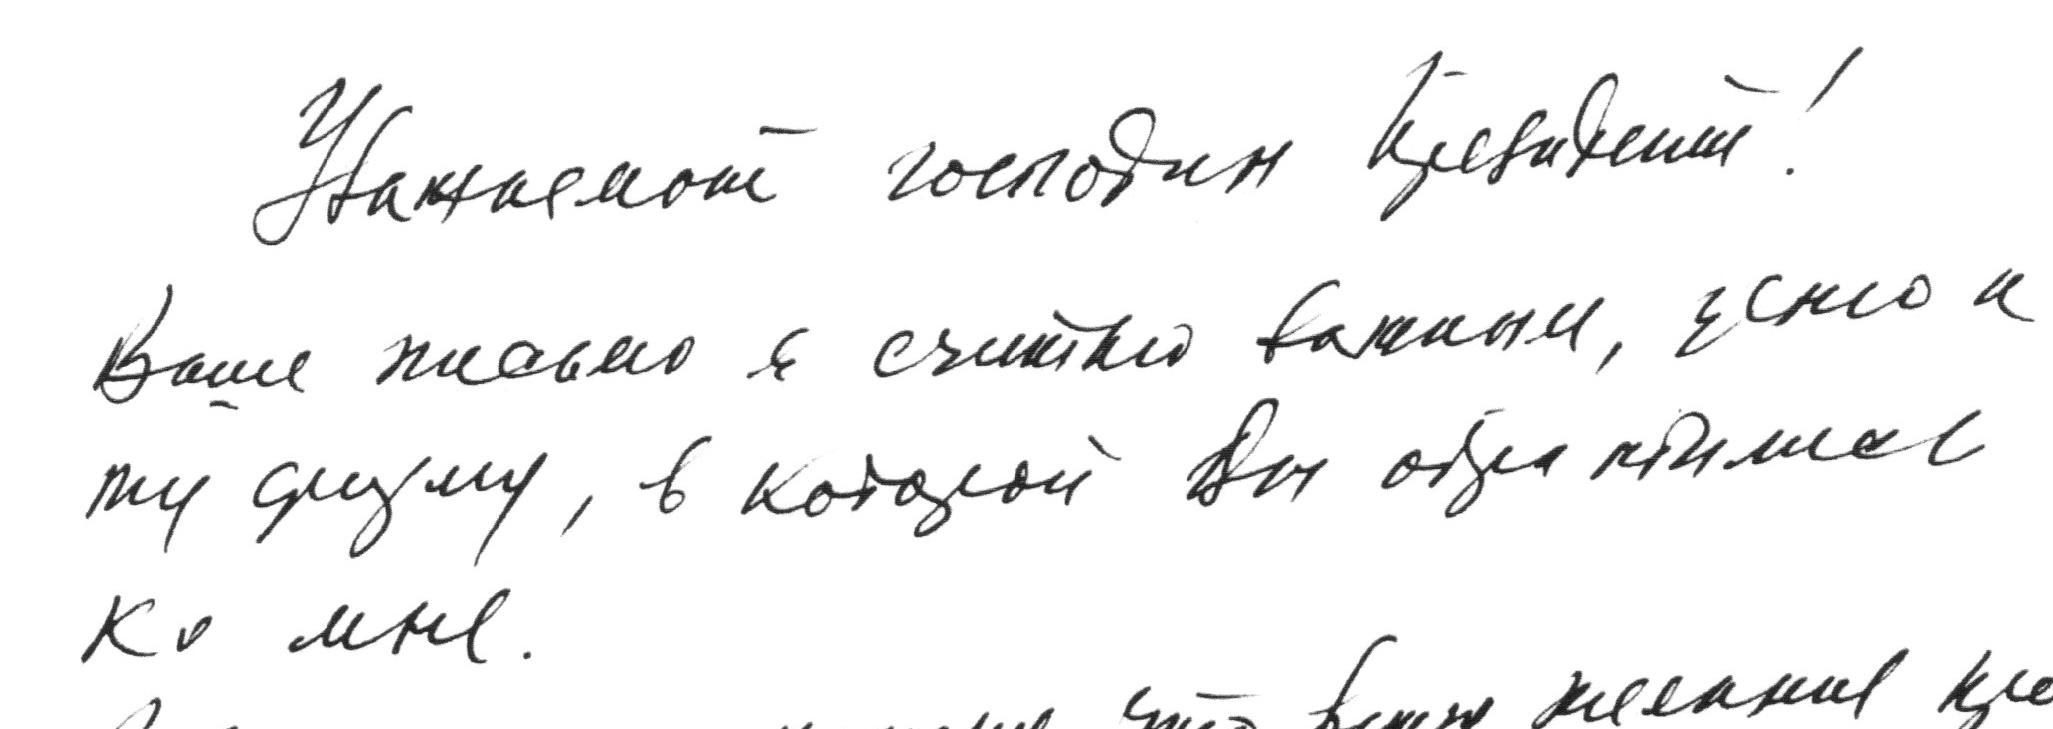 Уважаемый господин Президент!
Ваше письмо я считаю важным, ценю и
ту форму, в которой Вы обратились
ко мне.
что Ваши